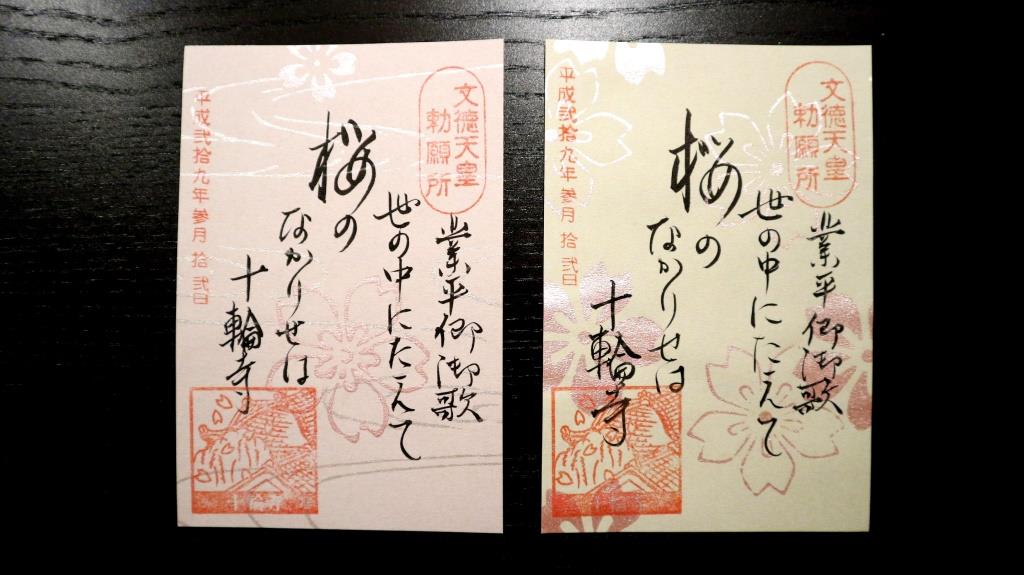 文徳天皇
勅願所
業平卿御歌
世の中にたえて
桜の
なかりせは
十輪寺
平成弐拾九年参月拾弐日
十輪寺
文徳天皇
勅願所
業平卿御歌
世の中にたえて
桜の
なかりせは
十輪寺
平成弐拾九年参月拾弐日